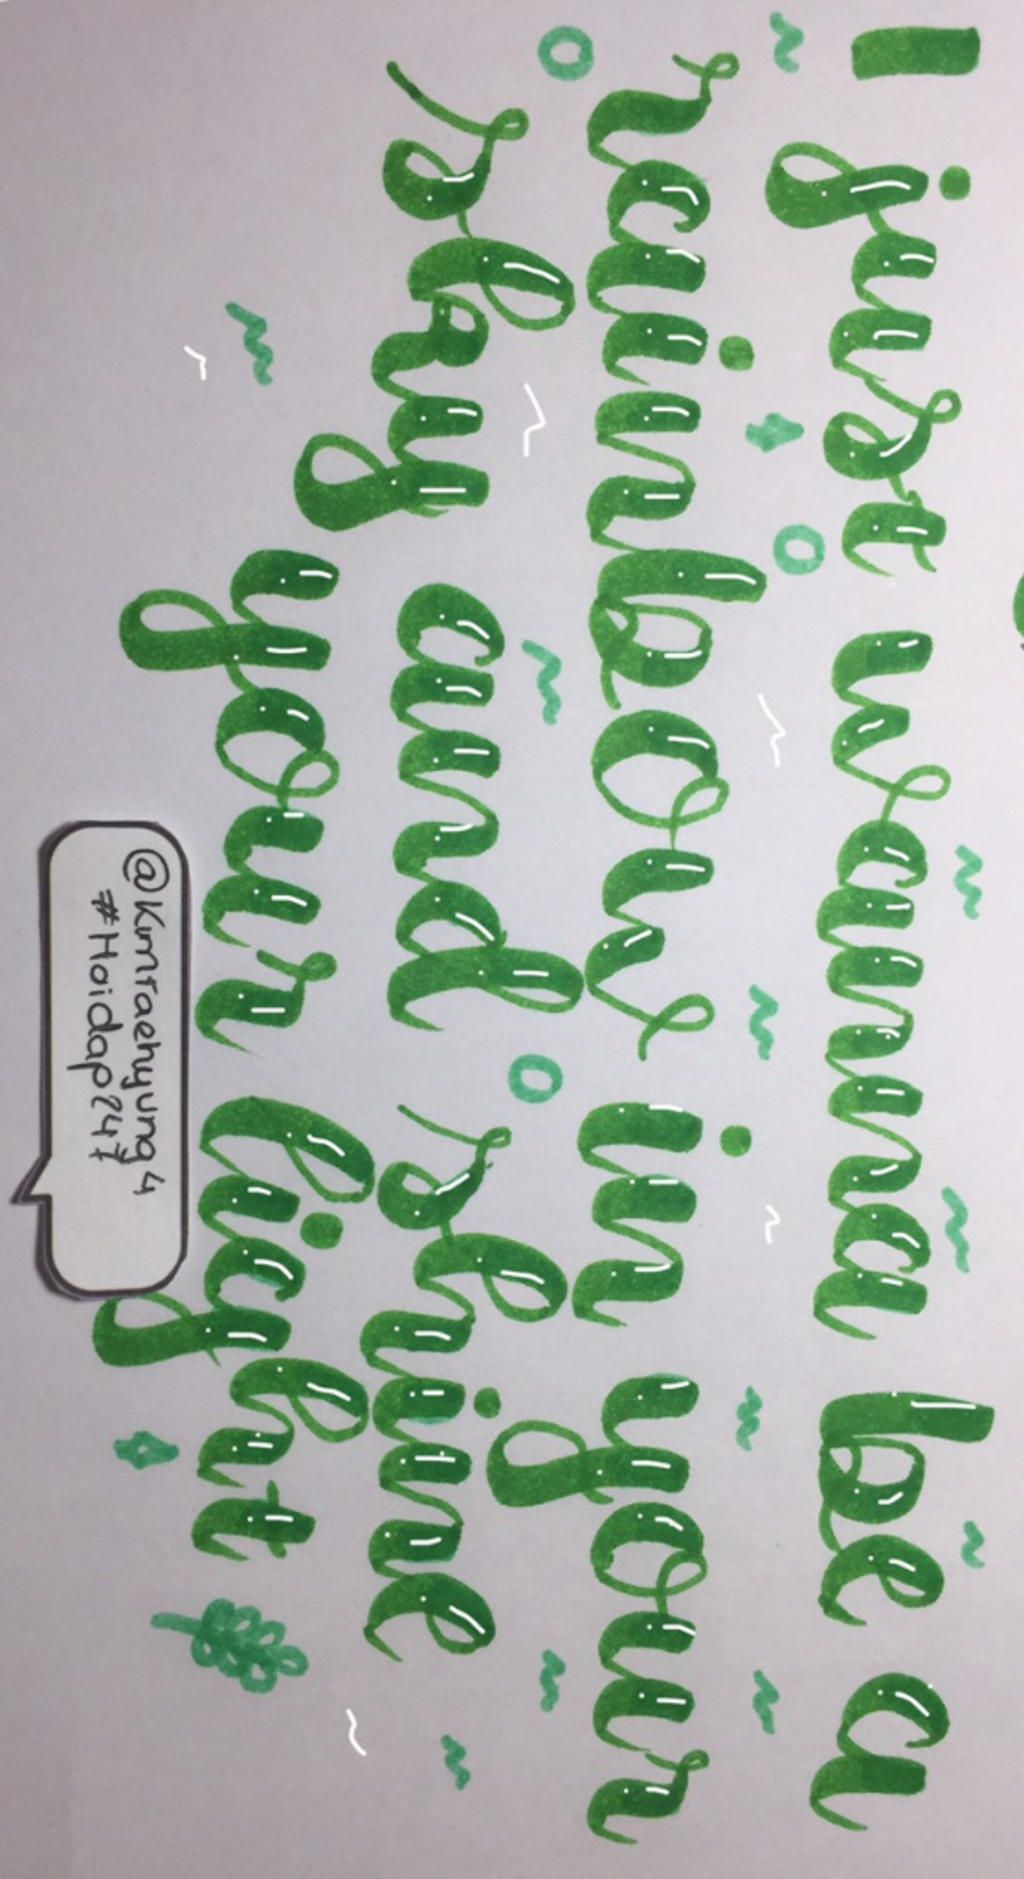 I just wanna be a
rainbow in your
sky and shine
your light
@Kimtaehyung4
#Hoidap247